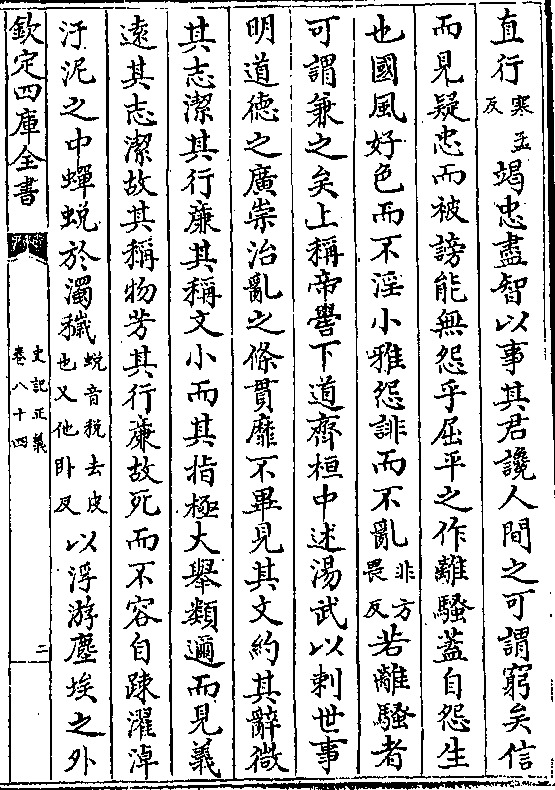 直行寒孟反竭忠盡智以事其君讒人間之可謂窮矣信
而見疑忠而被謗能無怨乎屈平之作離騷蓋自怨生
也國風好色而不淫小雅怨誹而不亂非方畏反若離騷者
可謂兼之矣上稱帝嚳下道齊桓中述湯武以刺世事
明道徳之廣崇治亂之條貫靡不畢見其文約其辭微
其志潔其行廉其稱文小而其指極大舉類邇而見義
逺其志潔故其稱物芳其行廉故死而不容自踈濯淖
汙泥之中蟬蛻於濁穢蛻音稅去皮也又他卧反以浮游塵埃之外
欽定四庫全書
史記正義
卷八十四
二